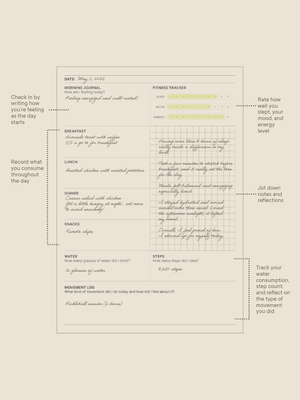 DATE: May 5, 2025
MORNING JOURNAL
How am I feeling today?
Feeling energized and well-rested!
FITNESS TRACKER
SLEEP
MOOD
ENERGY
Check in by
writing how
you're feeling
as the day
starts
Rate how
well you
slept, your
mood, and
energy
level
BREAKFAST
Avocado toast with coffee
Record what
you consume
throughout
the day
LUNCH
Roasted chicken with roasted potatoes
DINNER
Caesar salad with chicken
Got a little hungry at night, not sure
to snack mindfully!
SNACKS
Kimchi chips
Having more than 8 hours of sleep
really made a difference in my
Took a few minutes to stretch before
breakfast, and it really set the tone
for the day.
Meals felt balanced and energizing
especially lunch.
I stayed hydrated and moved
Overall, I feel proud of how
I showed up for myself today.
Jot down
notes and
reflections
WATER
How many glasses of water did I drink?
12 glasses of water
STEPS
How many steps did I take?
8,201 steps
MOVEMENT LOG
What kind of movement did I do today and how did I feel about it?
Pickleball session (2 hours)
Track your
water
consumption,
step count,
and reflect on
the type of
movement
you did